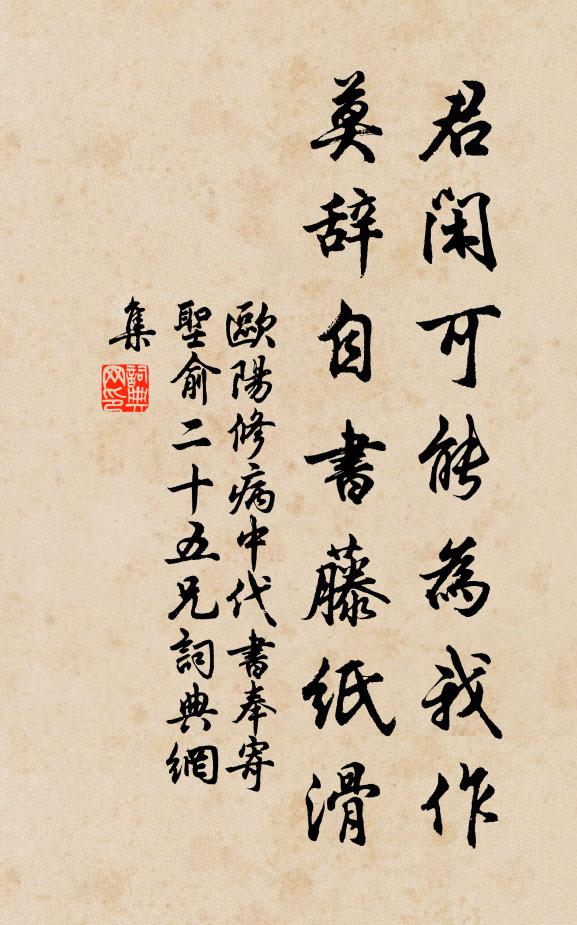 君闲可能為我作
莫辞自書藤紙滑
歐陽修病中代書奉寄
聖俞二十五兄詞典網
集
詞典
网印